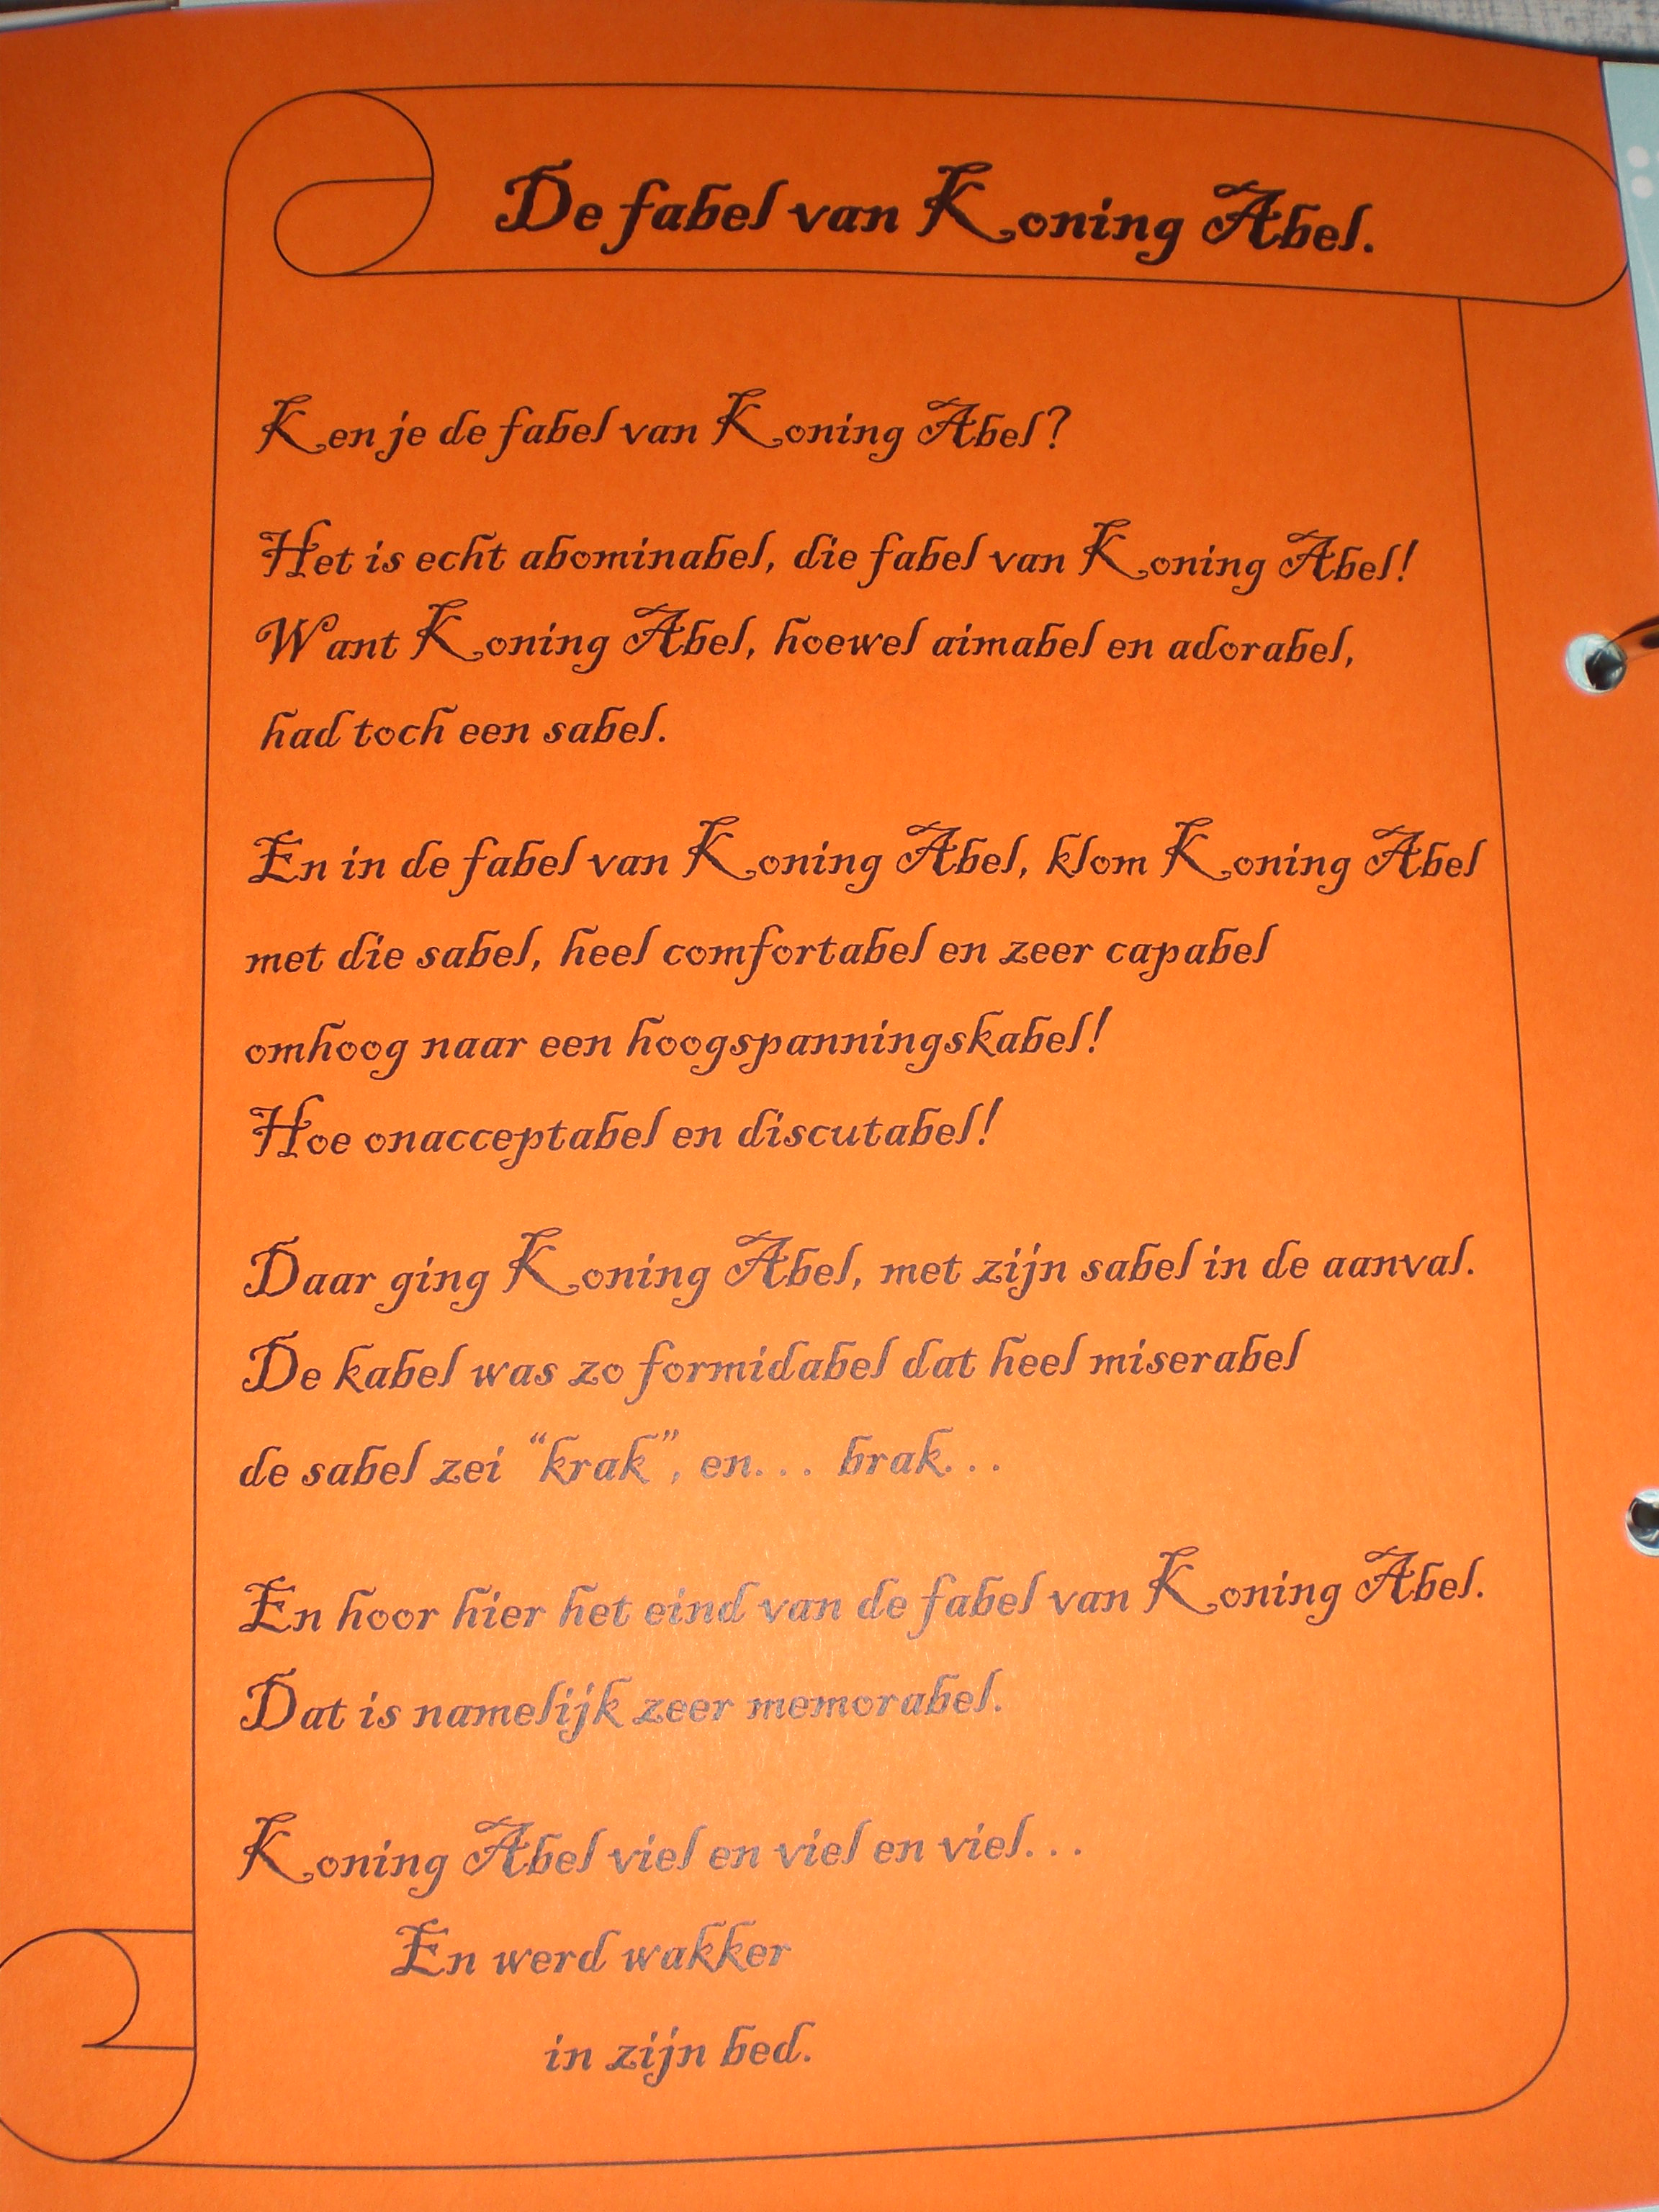 De fabel van Koning Abel.
Ken je de fabel van Koning Abel?
Het is echt abominabel, die fabel van Koning Abel!
Want Koning Abel, hoewel aimabel en adorabel,
had toch een sabel.
En in de fabel van Koning Abel, klom Koning Abel
met die sabel, heel comfortabel en zeer capabel
omhoog naar een hoogspanningskabel!
Hoe onacceptabel en discutabel!
Daar ging Koning Abel, met zijn sabel in de aanval.
De kabel was zo formidabel dat heel miserabel
de sabel zei “krak”, en... brak...
En hoor hier het eind van de fabel van Koning Abel.
Dat is namelijk zeer memorabel.
Koning Abel viel en viel en viel...
En werd wakker
in zijn bed.